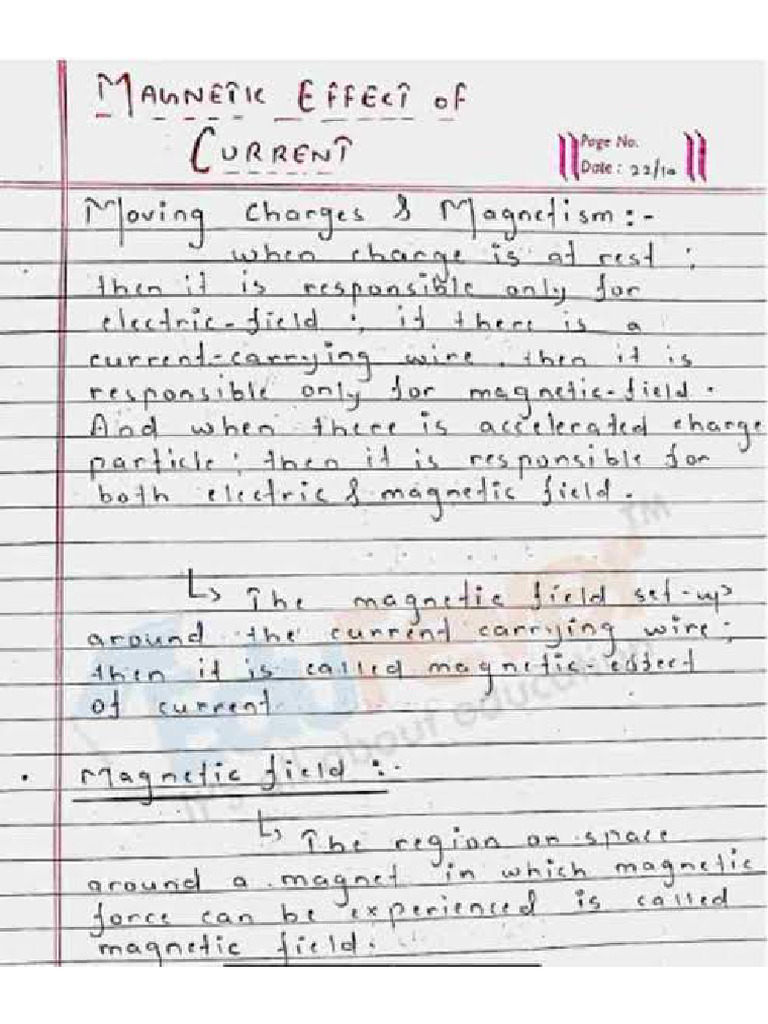 MAGNETIC EFFECT OF
CURRENT
Page No.
Date: 22/10
Moving Charges & Magnetism:-
when charge is at rest;
then it is responsible only for
electric-field; if there is a
current-carrying wire, then it is
responsible only for magnetic-field.
And when there is accelerated charge
particle; then it is responsible for
both electric & magnetic field.
TM
↳ The magnetic field set-up
around the current carrying wire;
then it is called magnetic-effect
of current
about education
Magnetic field:-
↳ The region on space
around a magnet in which magnetic
force can be experienced is called
magnetic field.